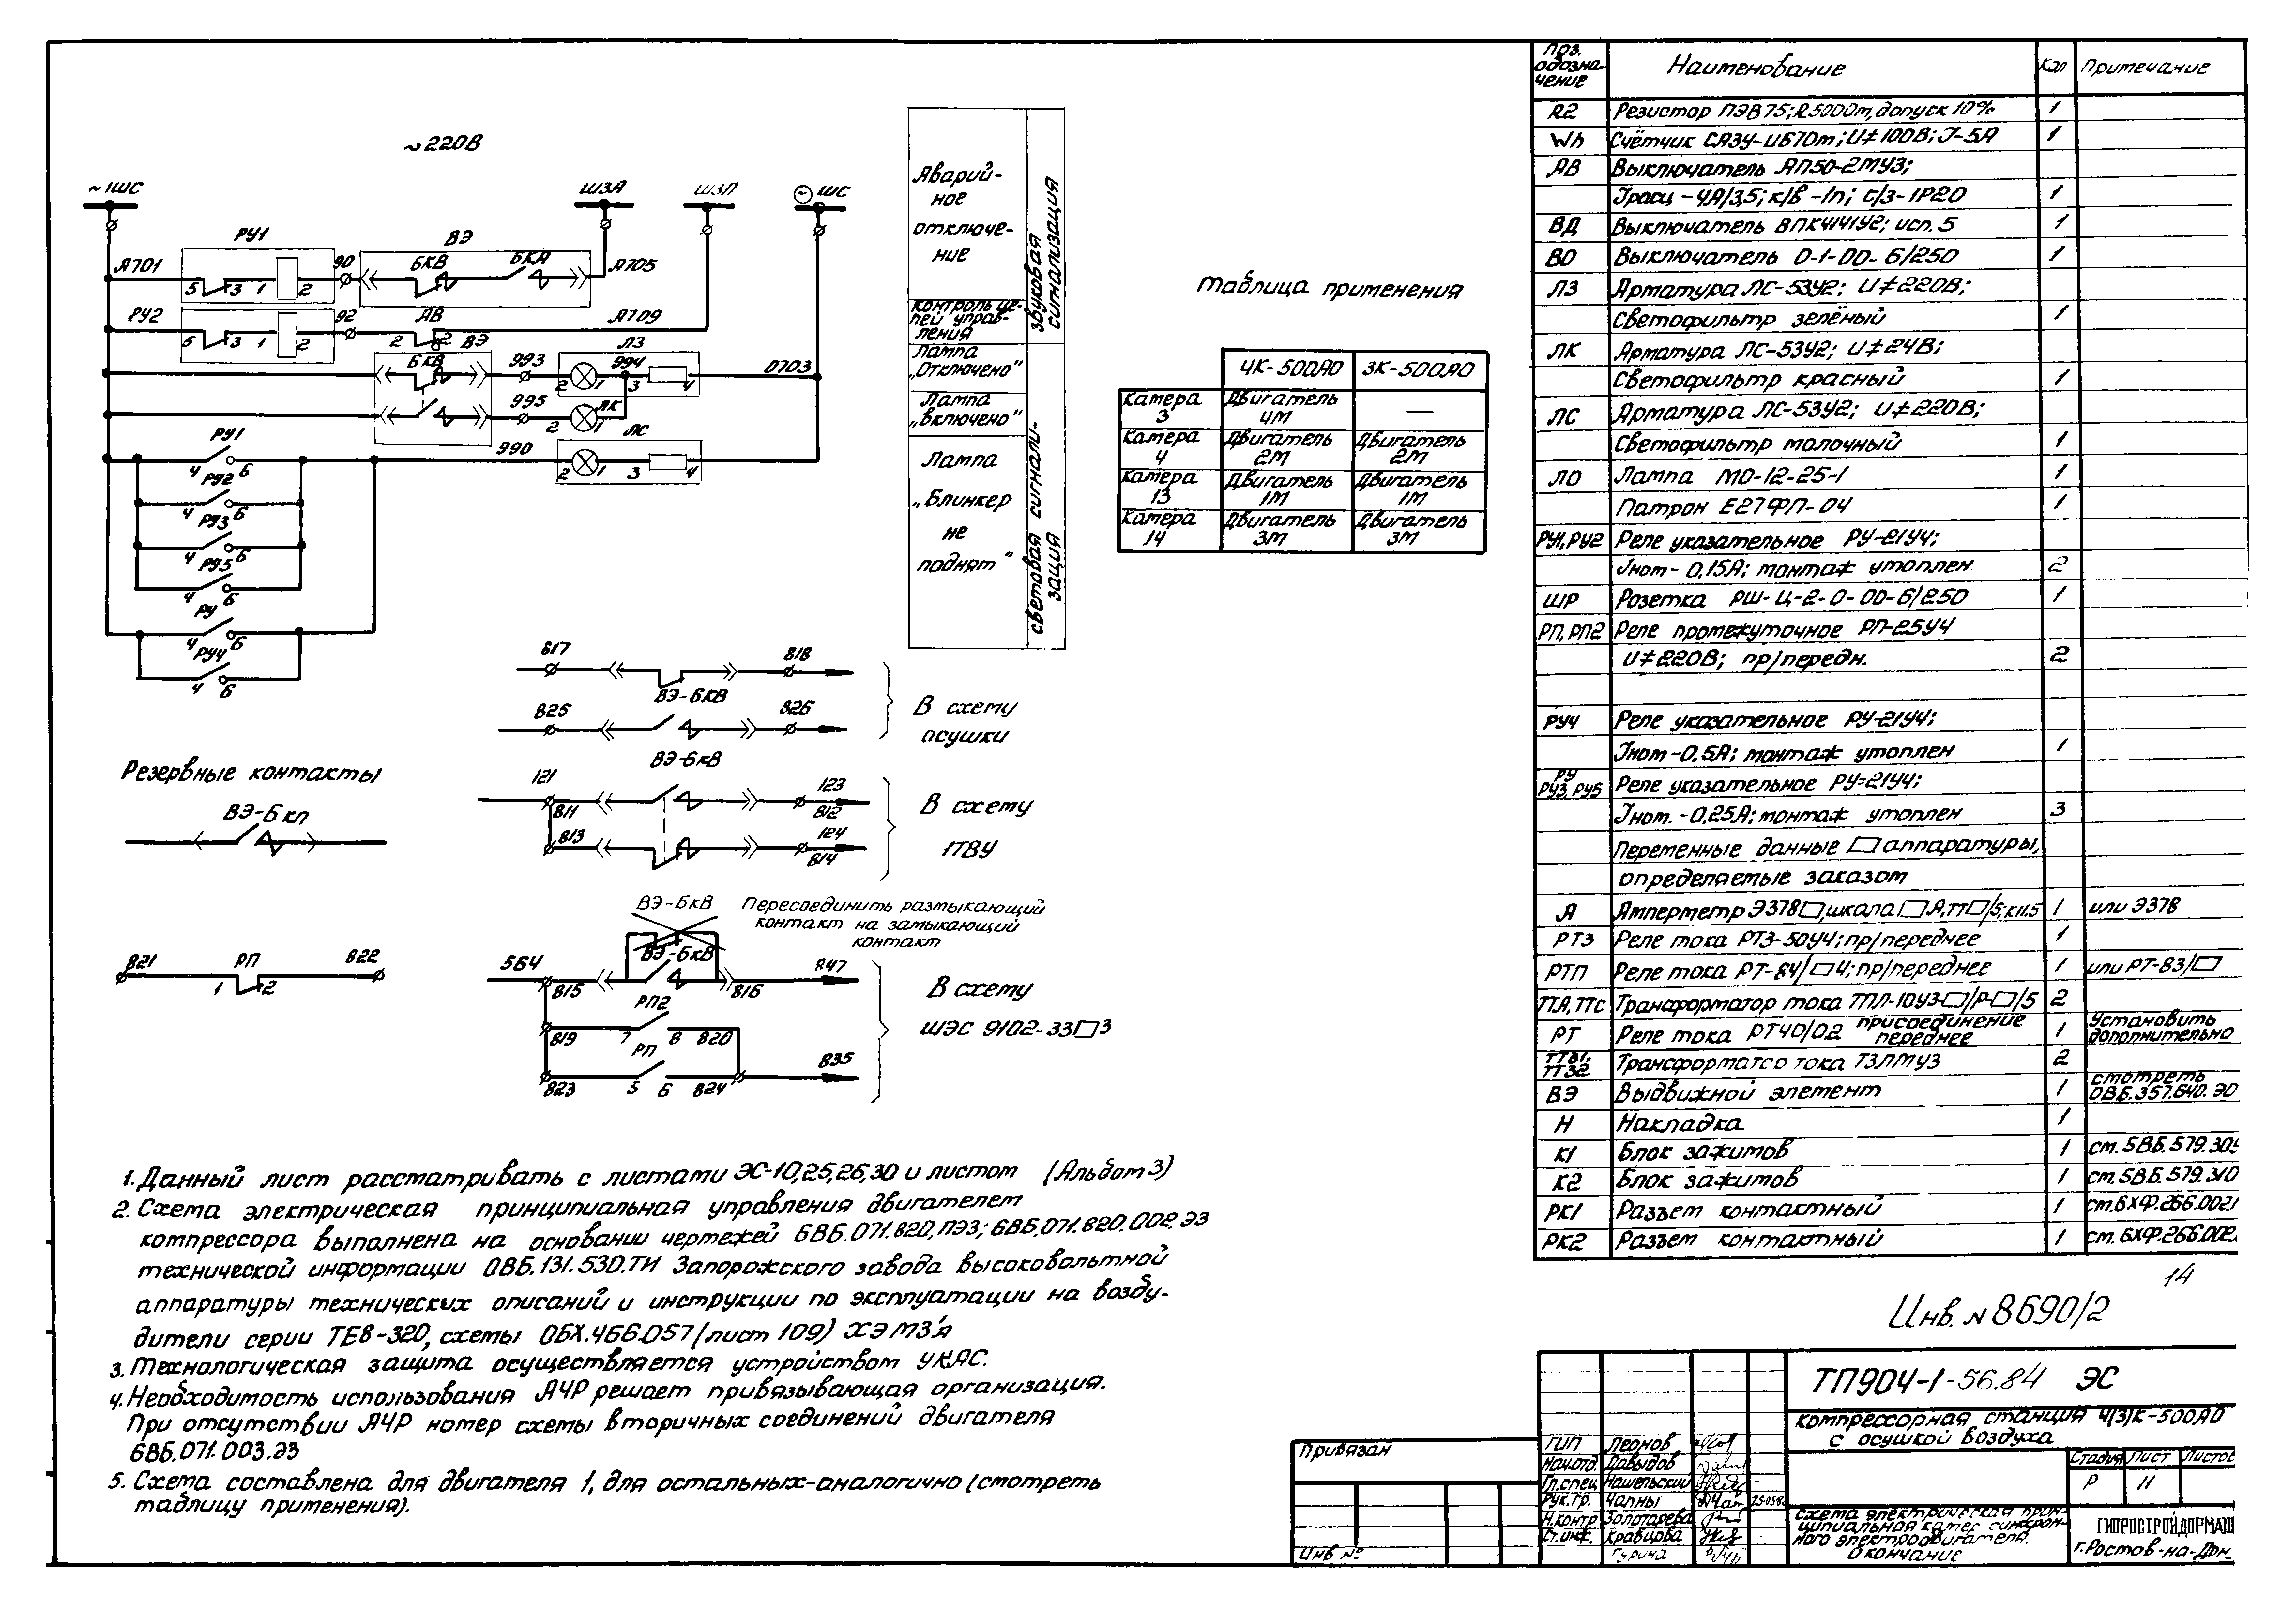 ~220В
~1ШС
ШЗА
ШЗП
ШС
РУ1
ВЭ
А701
5 3 1 2
90
БКВ
БКА
А705
РУ2
5 3 1 2
92
АВ
2 2
А709
ВЭ
БКВ
993
ЛЗ
2 1
994
3 4
0703
995
2 1
ЛК
990
ЛС
2 1 3 4
РУ1
4 6
РУ2
4 6
РУ3
4 6
РУ5
4 6
РУ
4 6
РУ4
4 6
Аварий-
ное
отключе-
ние
Контроль це-
пей управ-
ления
звуковая
сигнализация
Лампа
„Отключено"
Лампа
„Включено"
Лампа
„Блинкер
не
поднят"
световая сигнали-
зация
Таблица применения
4К-500А0 3К-500А0
Камера 3 Двигатель 4М —
Камера 4 Двигатель 2М Двигатель 2М
Камера 13 Двигатель 1М Двигатель 1М
Камера 14 Двигатель 3М Двигатель 3М
817
818
ВЭ-БКВ
825
826
ВЭ-БКВ
В схему
осушки
Резервные контакты
ВЭ-БКП
121
811
123
812
813
124
814
В схему
1ТВУ
ВЭ-БКВ
Пересоединить размыкающий
контакт на замыкающий
контакт
ВЭ-БКВ
821
РП
1 2
822
564
815
816
847
РП2
819 7 8 820
РП
823 5 6 824
835
В схему
ШЭС 9102-33□3
1. Данный лист рассматривать с листами ЭС-10,25,26,30 и листом (Альбом 3)
2. Схема электрическая принципиальная управления двигателем
компрессора выполнена на основании чертежей 6ВБ.071.820.ПЭЗ; 6ВБ.071.820.002.ЭЗ
технической информации ОВБ.131.530.ТИ Запорожского завода высоковольтной
аппаратуры технических описаний и инструкции по эксплуатации на возбу-
дители серии ТЕ8-320, схемы ОБХ.466.057 (лист 109) ХЭМЗ'а
3. Технологическая защита осуществляется устройством УКАС.
4. Необходимость использования АЧР решает привязывающая организация.
При отсутствии АЧР номер схемы вторичных соединений двигателя
6ВБ.071.003.ЭЗ
5. Схема составлена для двигателя 1, для остальных-аналогично (смотреть
таблицу применения).
Поз. обозна-чение Наименование Кол Примечание
R2 Резистор ПЭВ75; R 500Ом, допуск 10% 1
Wh Счётчик СА3У-И670м; U≠100В; J-5А 1
АВ Выключатель АП50-2МУ3;
Jрасц-4А/3,5; к/в-1п; с/з-1Р20 1
ВД Выключатель ВПК4141У2; исп. 5 1
ВО Выключатель 0-1-00-6/250 1
ЛЗ Арматура ЛС-53У2; U≠220В;
светофильтр зелёный 1
ЛК Арматура ЛС-53У2; U≠24В;
Светофильтр красный 1
ЛС Арматура ЛС-53У2; U≠220В;
светофильтр молочный 1
ЛО Лампа МО-12-25-1 1
Патрон Е27ФП-04 1
РУ1,РУ2 Реле указательное РУ-21У4;
Jном-0,15А; монтаж утоплен 2
ШР Розетка РШ-Ц-2-0-00-6/250 1
РП,РП2 Реле промежуточное РП-25У4
U≠220В; пр/передн. 2
РУ4 Реле указательное РУ-21У4;
Jном-0,5А; монтаж утоплен 1
РУ РУ3,РУ5 Реле указательное РУ-21У4;
Jном.-0,25А; монтаж утоплен 3
Переменные данные □ аппаратуры,
определяемые заказом
А Амперметр Э378□, шкала □А,ТТ□/5; к11.5 1 или Э378
РТЗ Реле тока РТЗ-50У4; пр/переднее 1
РТП Реле тока РТ-84/□4; пр/переднее 1 или РТ-83/□
ТТА,ТТС Трансформатор тока ТПЛ-10У3-□/Р-□/5 2
РТ Реле тока РТ40/0.2 присоединение переднее 1 Установить дополнительно
ТТЗ1, ТТЗ2 Трансформатор тока ТЗЛМУЗ 2
ВЭ Выдвижной элемент 1 смотреть ОВБ.357.640.ЭО
Н Накладка 1
К1 Блок зажимов 1 см. 5ВБ.579.309
К2 Блок зажимов 1 см. 5ВБ.579.310
РК1 Разъем контактный 1 см.6ХФ.266.002.1
РК2 Разъем контактный 1 см. 6ХФ.266.002.
14
Инв. N 8690/2
Привязан
Инв №
ГИП Леонов
Нач.отд. Давыдов
Гл.спец Нашельский
Рук.гр. Чапны
Н.контр Золотарева
Ст.инж. Кравцова
Гурина
ТП904-1-56.84 ЭС
Компрессорная станция 4(3)К-500А0
с осушкой воздуха
Стадия Лист Листов
Р 11
Схема электрическая прин-
ципиальная камер синхрон-
ного электродвигателя.
Окончание
ГИПРОСТРОЙДОРМАШ
г.Ростов-на-Дон.